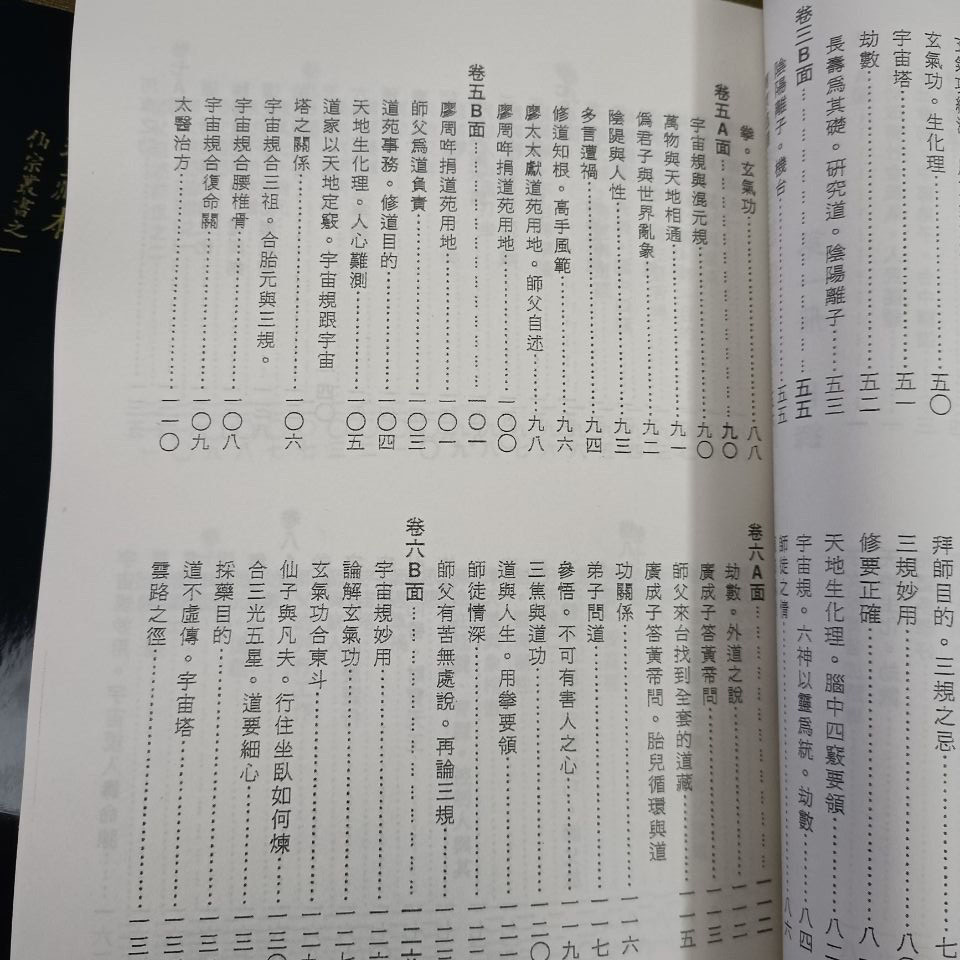 玄氣功。生化理……五〇
宇宙塔……五一
劫數……五二
長壽爲其礎。研究道。陰陽離子……五三
卷三B面……五五
陰陽離子。機台……五五
拜師目的。三規之忌……七
三規妙用……八〇
修要正確……八
天地生化理。腦中四竅要領……八二
宇宙規。六神以靈爲統。劫數……八四
師徒之情……八六
拳。玄氣功……八八
卷五A面……九〇
宇宙規與混元規……九〇
萬物與天地相通……九一
僞君子與世界亂象……九二
陰隄與人性……九三
多言遭禍……九四
修道知根。高手風範……九六
廖太太獻道苑用地。師父自述……九八
廖周哖捐道苑用地……一〇〇
卷五B面……一〇一
廖周哖捐道苑用地……一〇一
師父爲道負責……一〇三
道苑事務。修道目的……一〇四
天地生化理。人心難測……一〇五
道家以天地定竅。宇宙規跟宇宙
塔之關係……一〇六
宇宙規合三祖。合胎元與三規。
宇宙規合腰椎骨……一〇八
宇宙規合復命關……一〇九
太醫治方……一一〇
卷六A面……一一二
劫數。外道之說……一一二
廣成子答黃帝問……一一三
師父來台找到全套的道藏……一一五
廣成子答黃帝問。胎兒循環與道
功關係……一一六
弟子問道……一一七
參悟。不可有害人之心……一一九
三焦與道功……一二〇
道與人生。用拳要領……一二
師徒情深……一二
師父有苦無處說。再論三規……一二
卷六B面……一二六
宇宙規妙用……一二六
論解玄氣功……一二七
玄氣功合東斗……一二九
仙子與凡夫。行住坐臥如何煉……一三〇
合三光五星。道要細心……一三
採藥目的……一三
道不虛傳。宇宙塔……一三
雲路之徑……一三
仙宗叢書之一